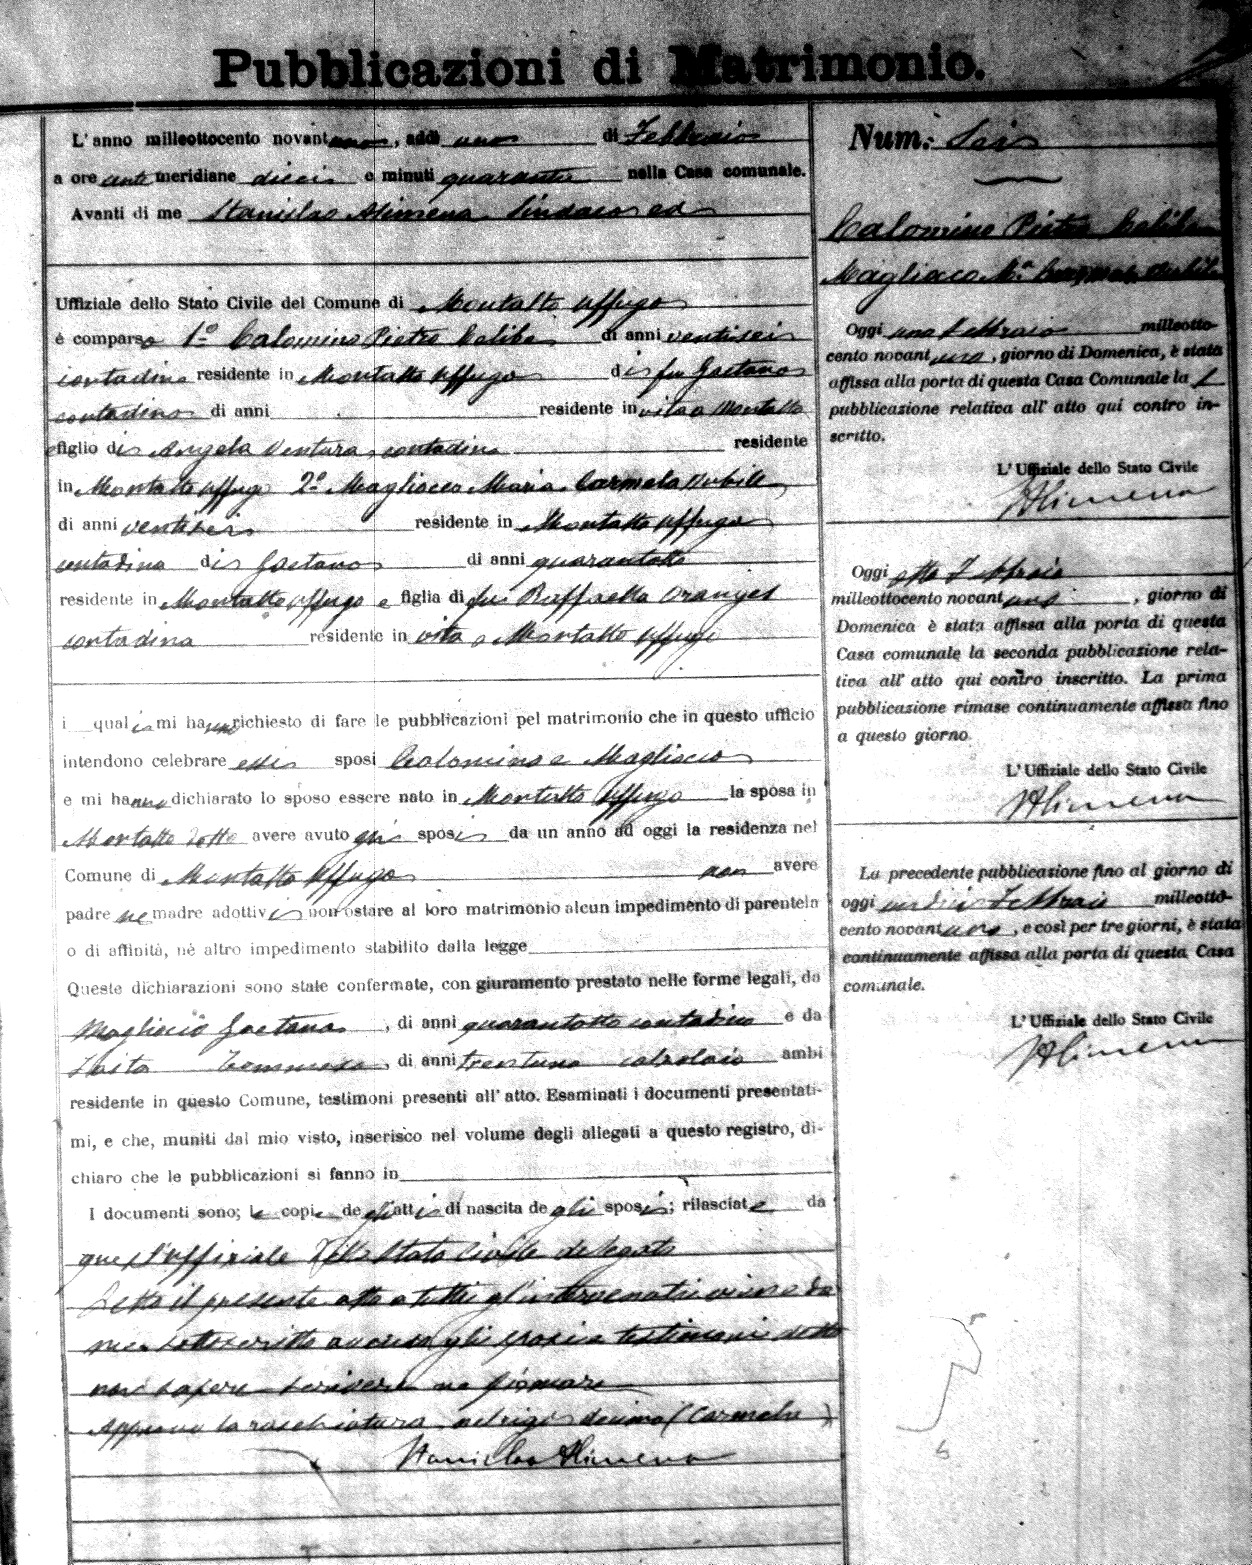 Pubblicazioni di Matrimonio.
L'anno milleottocento novantuno, addì uno di Febbraio
a ore antimeridiane dieci e minuti quaranta nella Casa comunale.
Avanti di me Stanislao Alimena Sindaco ed
Uffiziale dello Stato Civile del Comune di Montalto Uffugo
è comparso 1º Calomino Pietro Celibe di anni ventisei
contadino residente in Montalto Uffugo di fu Gaetano
contadino di anni residente in vita a Montalto
figlio di Angela Ventura contadina residente
in Montalto Uffugo 2º Magliocco Maria Carmela Nubile
di anni ventisei residente in Montalto Uffugo
contadina di Gaetano di anni quarantotto
residente in Montalto Uffugo e figlia di fu Raffaella
contadina residente in vita a Montalto Uffugo
i quali mi hanno richiesto di fare le pubblicazioni pel matrimonio che in questo ufficio
intendono celebrare essi sposi Calomino e Magliocco
e mi hanno dichiarato lo sposo essere nato in Montalto Uffugo la sposa in
Montalto detto avere avuto gli sposi da un anno ad oggi la residenza nel
Comune di Montalto Uffugo non avere
padre ne madre adottivi non ostare al loro matrimonio alcun impedimento di parentela
o di affinità, nè altro impedimento stabilito dalla legge
Queste dichiarazioni sono state confermate, con giuramento prestato nelle forme legali, da
Magliocco Gaetano, di anni quarantotto contadino e da
Tommaso, di anni trentuno calzolaio ambi
residente in questo Comune, testimoni presenti all'atto. Esaminati i documenti presentati-
mi, e che, muniti dal mio visto, inserisco nel volume degli allegati a questo registro, di-
chiaro che le pubblicazioni si fanno in
I documenti sono; le copie degli atti di nascita degli sposi; rilasciate da
quest'uffiziale dello Stato Civile delegato
Letto il presente atto a tutti gl'intervenuti viene da
me sottoscritto avendo gli sposi e testimoni detto
non sapere scrivere ne firmare
Approvo la raschiatura nel rigo decimo (Carmela)
Stanislao Alimena
Num. Sei
Calomino Pietro Celibe
Magliocco Mª Carmela Nubile
Oggi uno Febbraio milleotto-
cento novantuno, giorno di Domenica, è stata
affissa alla porta di questa Casa Comunale la
pubblicazione relativa all'atto qui contro in-
scritto.
L'Uffiziale dello Stato Civile
S Alimena
Oggi otto Febbraio
milleottocento novantuno, giorno di
Domenica è stata affissa alla porta di questa
Casa comunale la seconda pubblicazione rela-
tiva all'atto qui contro inscritto. La prima
pubblicazione rimase continuamente affissa fino
a questo giorno
L'Uffiziale dello Stato Civile
S Alimena
La precedente pubblicazione fino al giorno di
oggi undici Febbraio milleotto-
cento novantuno, e così per tre giorni, è stata
continuamente affissa alla porta di questa Casa
comunale.
L'Uffiziale dello Stato Civile
S Alimena